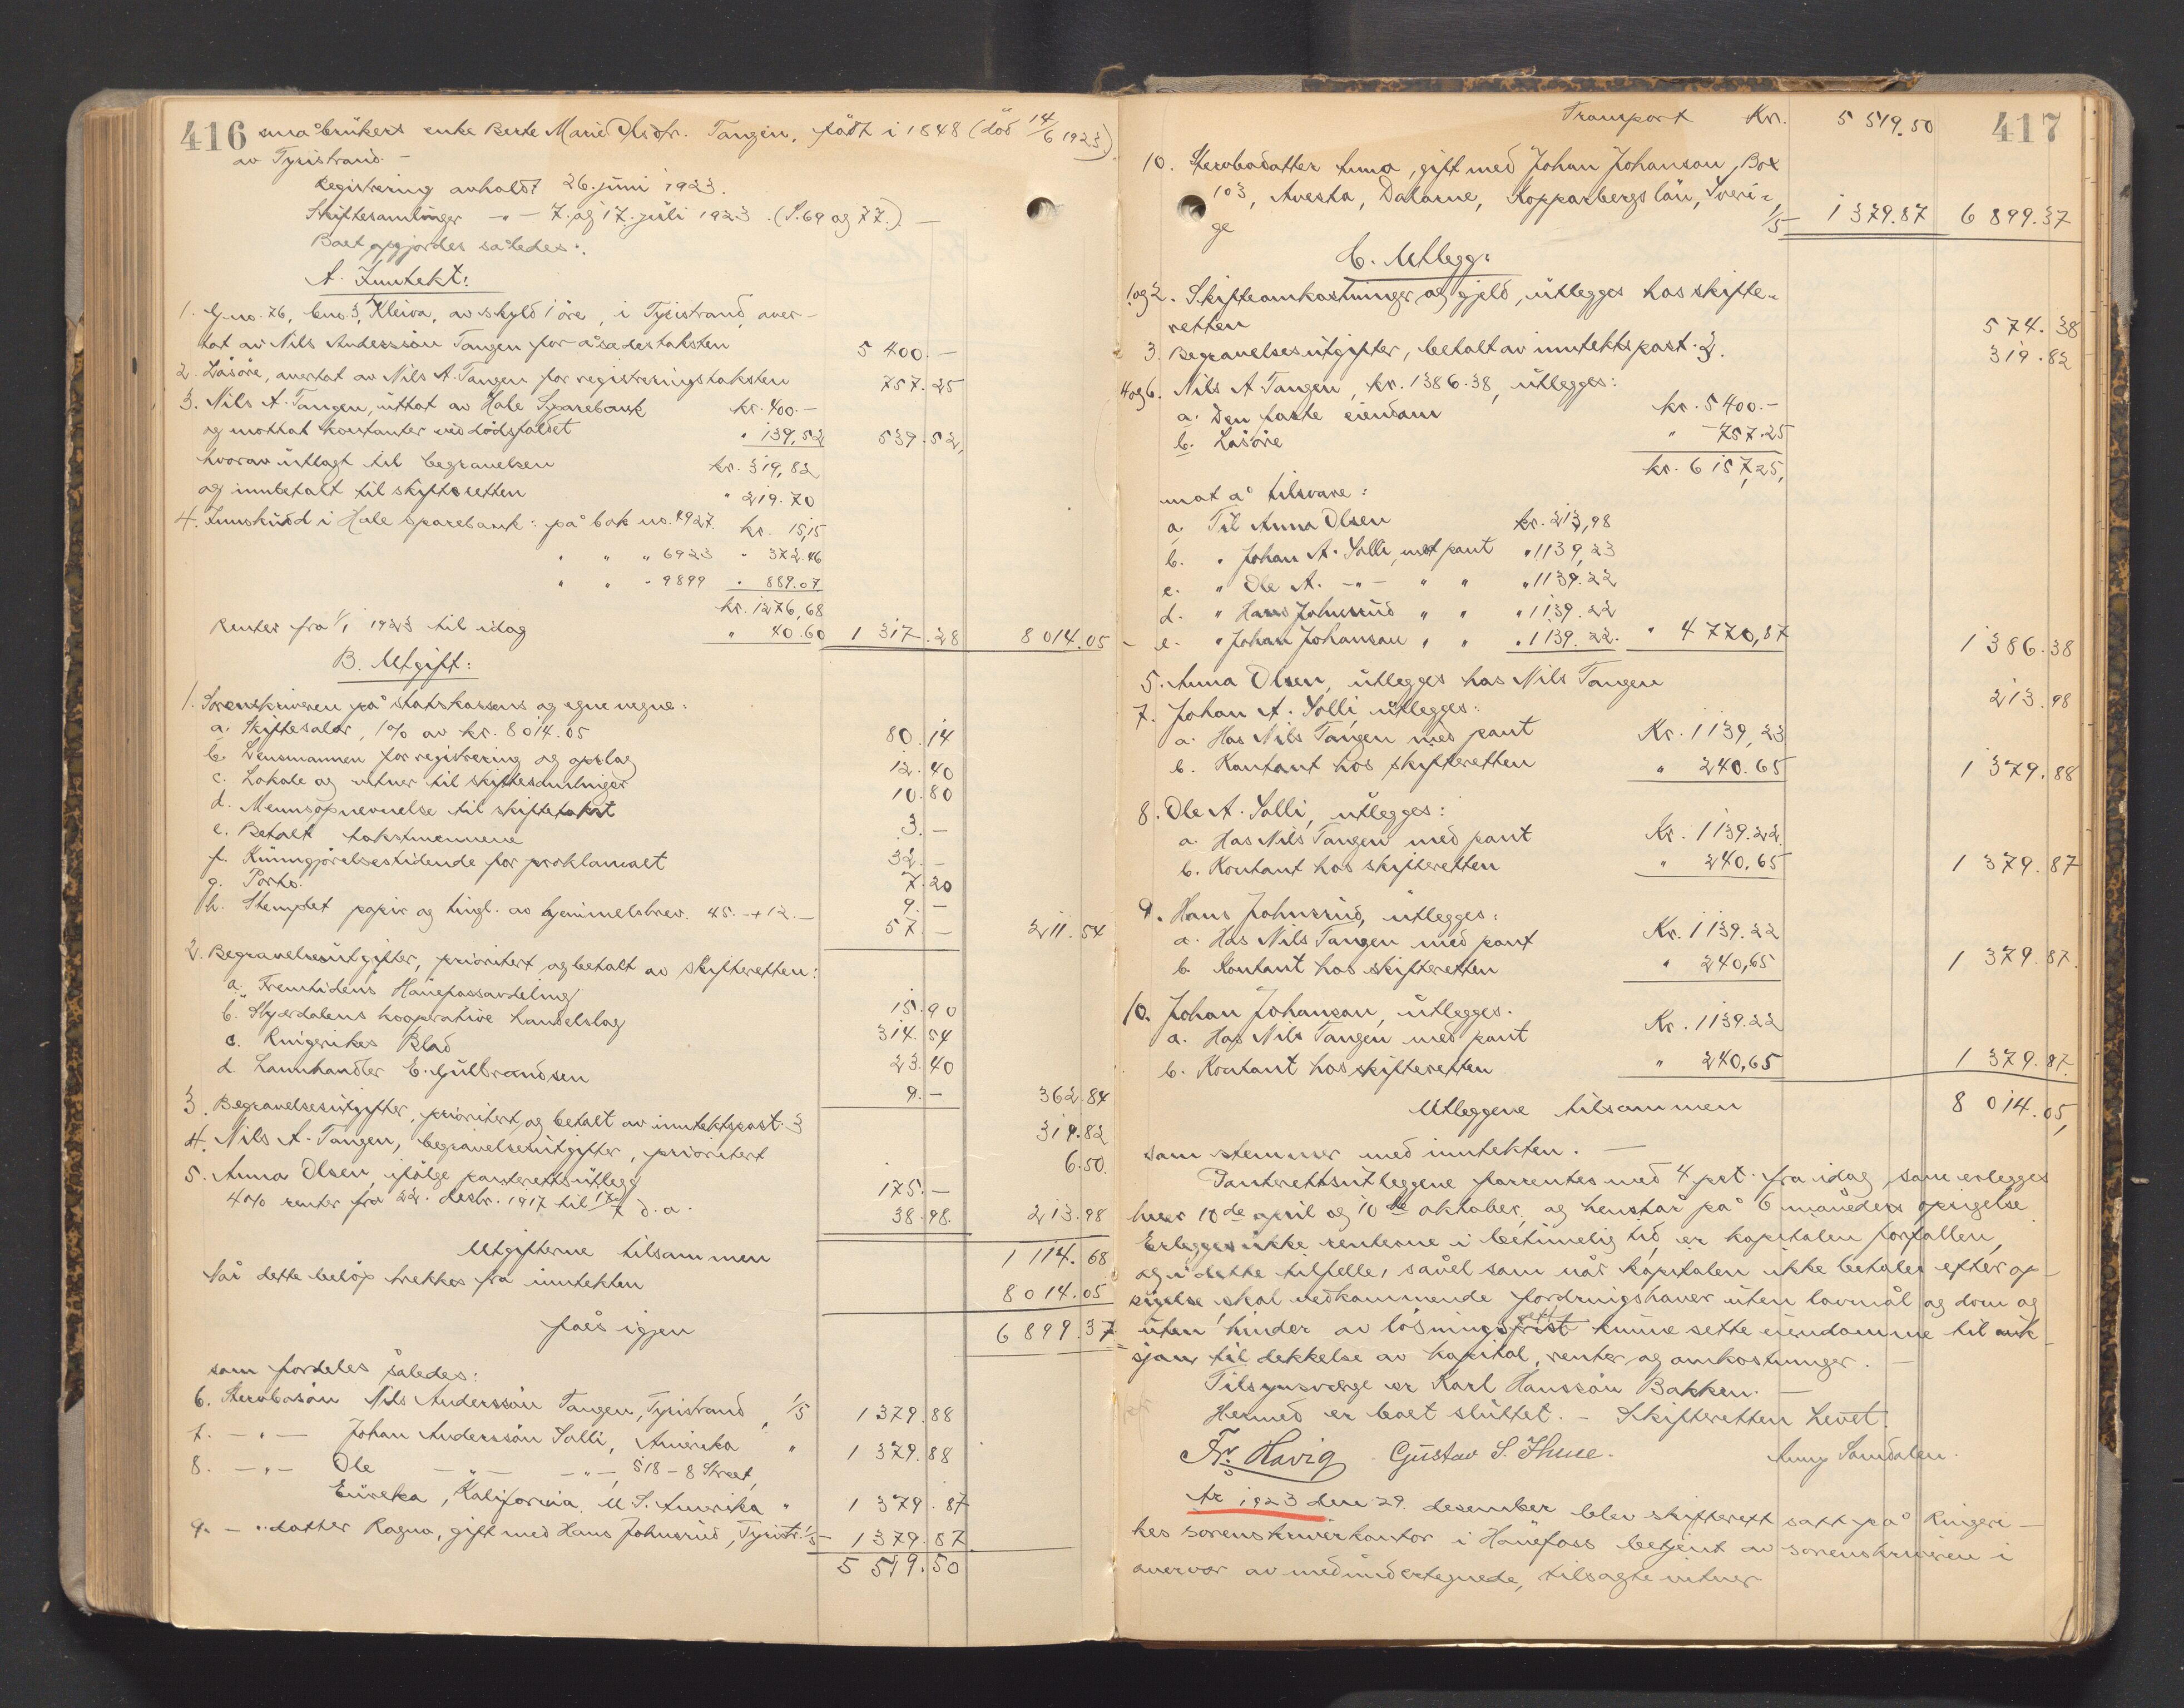 416 småbrukers enke Berte Marie Olsdtr. Tangen, født i 1848 (död 14/6 1923)
av Tyristrand. —
Registrering avholdt 26. juni 1923.
Skiftesamlinger —„— 7. og 17. juli 1923. (S. 69 og 77.) —
Boet opgjordes således:
A. Inntekt:
1. G.no. 76, b.no. 3, Kleiva, av skyld 1 öre, i Tyristrand, over-
tat av Nils Anderssön Tangen for åsædestaksten 5 400. —
2. Lösöre, overtat av Nils A. Tangen for registreringstaksten 757. 25
3. Nils A. Tangen, uttat av Hole Sparebank kr. 400. —
og mottat kontanter ved dödsfaldet „ 139,52 539. 52,
hvorav utlagt til begravelsen kr. 319,82
og innbetalt til skifteretten „ 219. 70
4. Innskudd i Hole sparebank: på bok no. 4927. kr. 15,15
„ „ „ 6923 „ 372.46
„ „ „ 9899 „ 889.07
kr. 1276,68
Renter fra 1/1 1923 til idag „ 40.60 1 317. 28 8 014.05
B. Utgift:
1. Sorenskriveren på statskassens og egne vegne:
a. Skiftesalær, 1% av kr. 8014.05 80. 14
b. Lensmannen for registrering og opslag 12. 40
c. Lokale og vitner til skiftesamlinger 10. 80
d. Mennsopnevnelse til skiftetakst 3. —
e. Betalt takstmennene 32. —
f. Kunngjörelsestidende for proklamaet 7. 20
g. Porto. 9. —
h. Stemplet papir og tingl. av hjemmelsbrev. 45.— + 12.— 57. — 211. 54
2. Begravelsesutgifter, prioritert og betalt av skifteretten:
a. Fremtidens Hönefossavdeling 15. 90
b. Skjærdalens kooperative handelslag 314. 54
c. Ringerikes Blad 23. 40
d. Lannhandler E. Gulbrandsen 9. — 362. 84
3. Begravelsesutgifter, prioritert og betalt av inntektspost 3 319. 82
4. Nils A. Tangen, begravelsesutgifter, prioritert 6. 50.
5. Anna Olsen, ifølge panterettsutlegg 175. —
4% renter fra 22. desbr. 1917 til 17/7 d.a. 38. 98. 213. 98
Utgifterne tilsammen 1 114. 68
Når dette belöp trekkes fra inntekten 8 014. 05
fåes igjen 6 899. 37
som fordeles således:
6. Stervbosön Nils Anderssön Tangen, Tyristrand, 1/5 1 379. 88
7. —„— Johan Anderssön Solli, Amerika „ 1 379. 88
8. —„— Ole —„— —„—, 518 – 8 Street,
Eureka, Kalifornia, U. S. Amerika „ 1 379. 87
9. —„ datter Ragna, gift med Hans Johnsrud, Tyristr. 1/5 1 379. 87
5 519. 50
417
Transport Kr. 5 519.50
10. Stervbodatter Anna, gift med Johan Johanson, Box
103, Avesta, Dalarne, Kopparbergs län, Sveri-
ge 1/5 1 379.87 6 899.37
C. Utlegg:
1 og 2. Skifteomkostninger og gjeld, utlegges hos skifte-
retten 574. 38
3. Begravelsesutgifter, betalt av inntektspost 3. 319. 82
4 og 6. Nils A. Tangen, kr. 1386.38, utlegges:
a. Den faste eiendom kr. 5 400. —
b. Lösöre „ 757.25
kr. 6 157,25,
mot å tilsvare:
a. Til Anna Olsen kr. 213,98
b. „ Johan A. Solli, mot pant „ 1139,23
c. „ Ole A. —„— „ „ „ 1139.22
d. „ Hans Johnsrud „ „ „ 1139.22
e. „ Johan Johanson „ „ „ 1139.22. „ 4 770,87 1 386. 38
5. Anna Olsen, utlegges hos Nils Tangen 213. 98
7. Johan A. Solli, utlegges:
a. Hos Nils Tangen med pant Kr. 1139,23
b. Kontant hos skifteretten „ 240.65 1 379. 88
8. Ole A. Solli, utlegges:
a. Hos Nils Tangen med pant Kr. 1139.22.
b. Kontant hos skifteretten „ 240,65 1 379. 87
9. Hans Johnsrud, utlegges:
a. Hos Nils Tangen med pant Kr. 1139.22
b. Kontant hos skifteretten „ 240,65 1 379. 87.
10. Johan Johanson, utlegges.
a. Hos Nils Tangen med pant Kr. 1139.22
b. Kontant hos skifteretten „ 240,65 1 379. 87.
Utleggene tilsammen 8 014. 05,
som stemmer med inntekten. —
Panterettsutleggene forrentes med 4 pct. fra idag, som erlegges
hver 10de april og 10de oktober, og henstår på 6 måneders opsigelse
Erlegges ikke renterne i betimelig tid, er kapitalen forfallen,
og i dette tilfelle, såvel som når kapitalen ikke betales efter op-
sigelse skal vedkommende fordringshaver uten lovmål og dom og
uten hinder av lösningsrett kunne sette eiendomme til auk-
sjon til dekkelse av kapital, renter og omkostninger. —
Tilsynsverge er Karl Hanssön Bakken. —
Hermed er boet sluttet. — Skifteretten hevet.
Fr. Hovig Gustav S. Thue. Aung Samdalen.
År 1923 den 29. desember blev skifterett satt på Ringeri-
kes sorenskriverkontor i Hönefoss betjent av sorenskriveren i
overvær av medundertegnede, tilsagte vitner